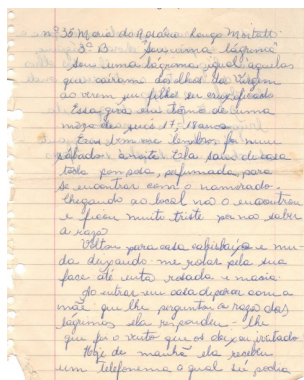 nº 36 Maria do Rosário Longo Mortatti
3º B "Juvenina lágrima"
Sou uma lágrima igual àquelas
que caíram dos olhos da Virgem
ao verem seu filho ser crucificado
Essa gira em tôrno de uma
môça de seus 17, 18 anos
Era bem me lembro foi num
sábado à noite Ela saiu de casa
toda pompada, perfumada, para
se encontrar com o namorado.
Chegando ao local não o encontrou
e ficou muito triste por não saber
a razão
Voltou para casa cabisbaixa e mu-
da deixando-me rolar pela sua
face até então rosada e macia.
Ao entrar em casa deparou com a
mãe que lhe perguntou a razão das
lágrimas ela respondeu-lhe
que foi o vento que os deixou irritado
Hoje de manhã ela recebeu
um telefonema o qual só podia